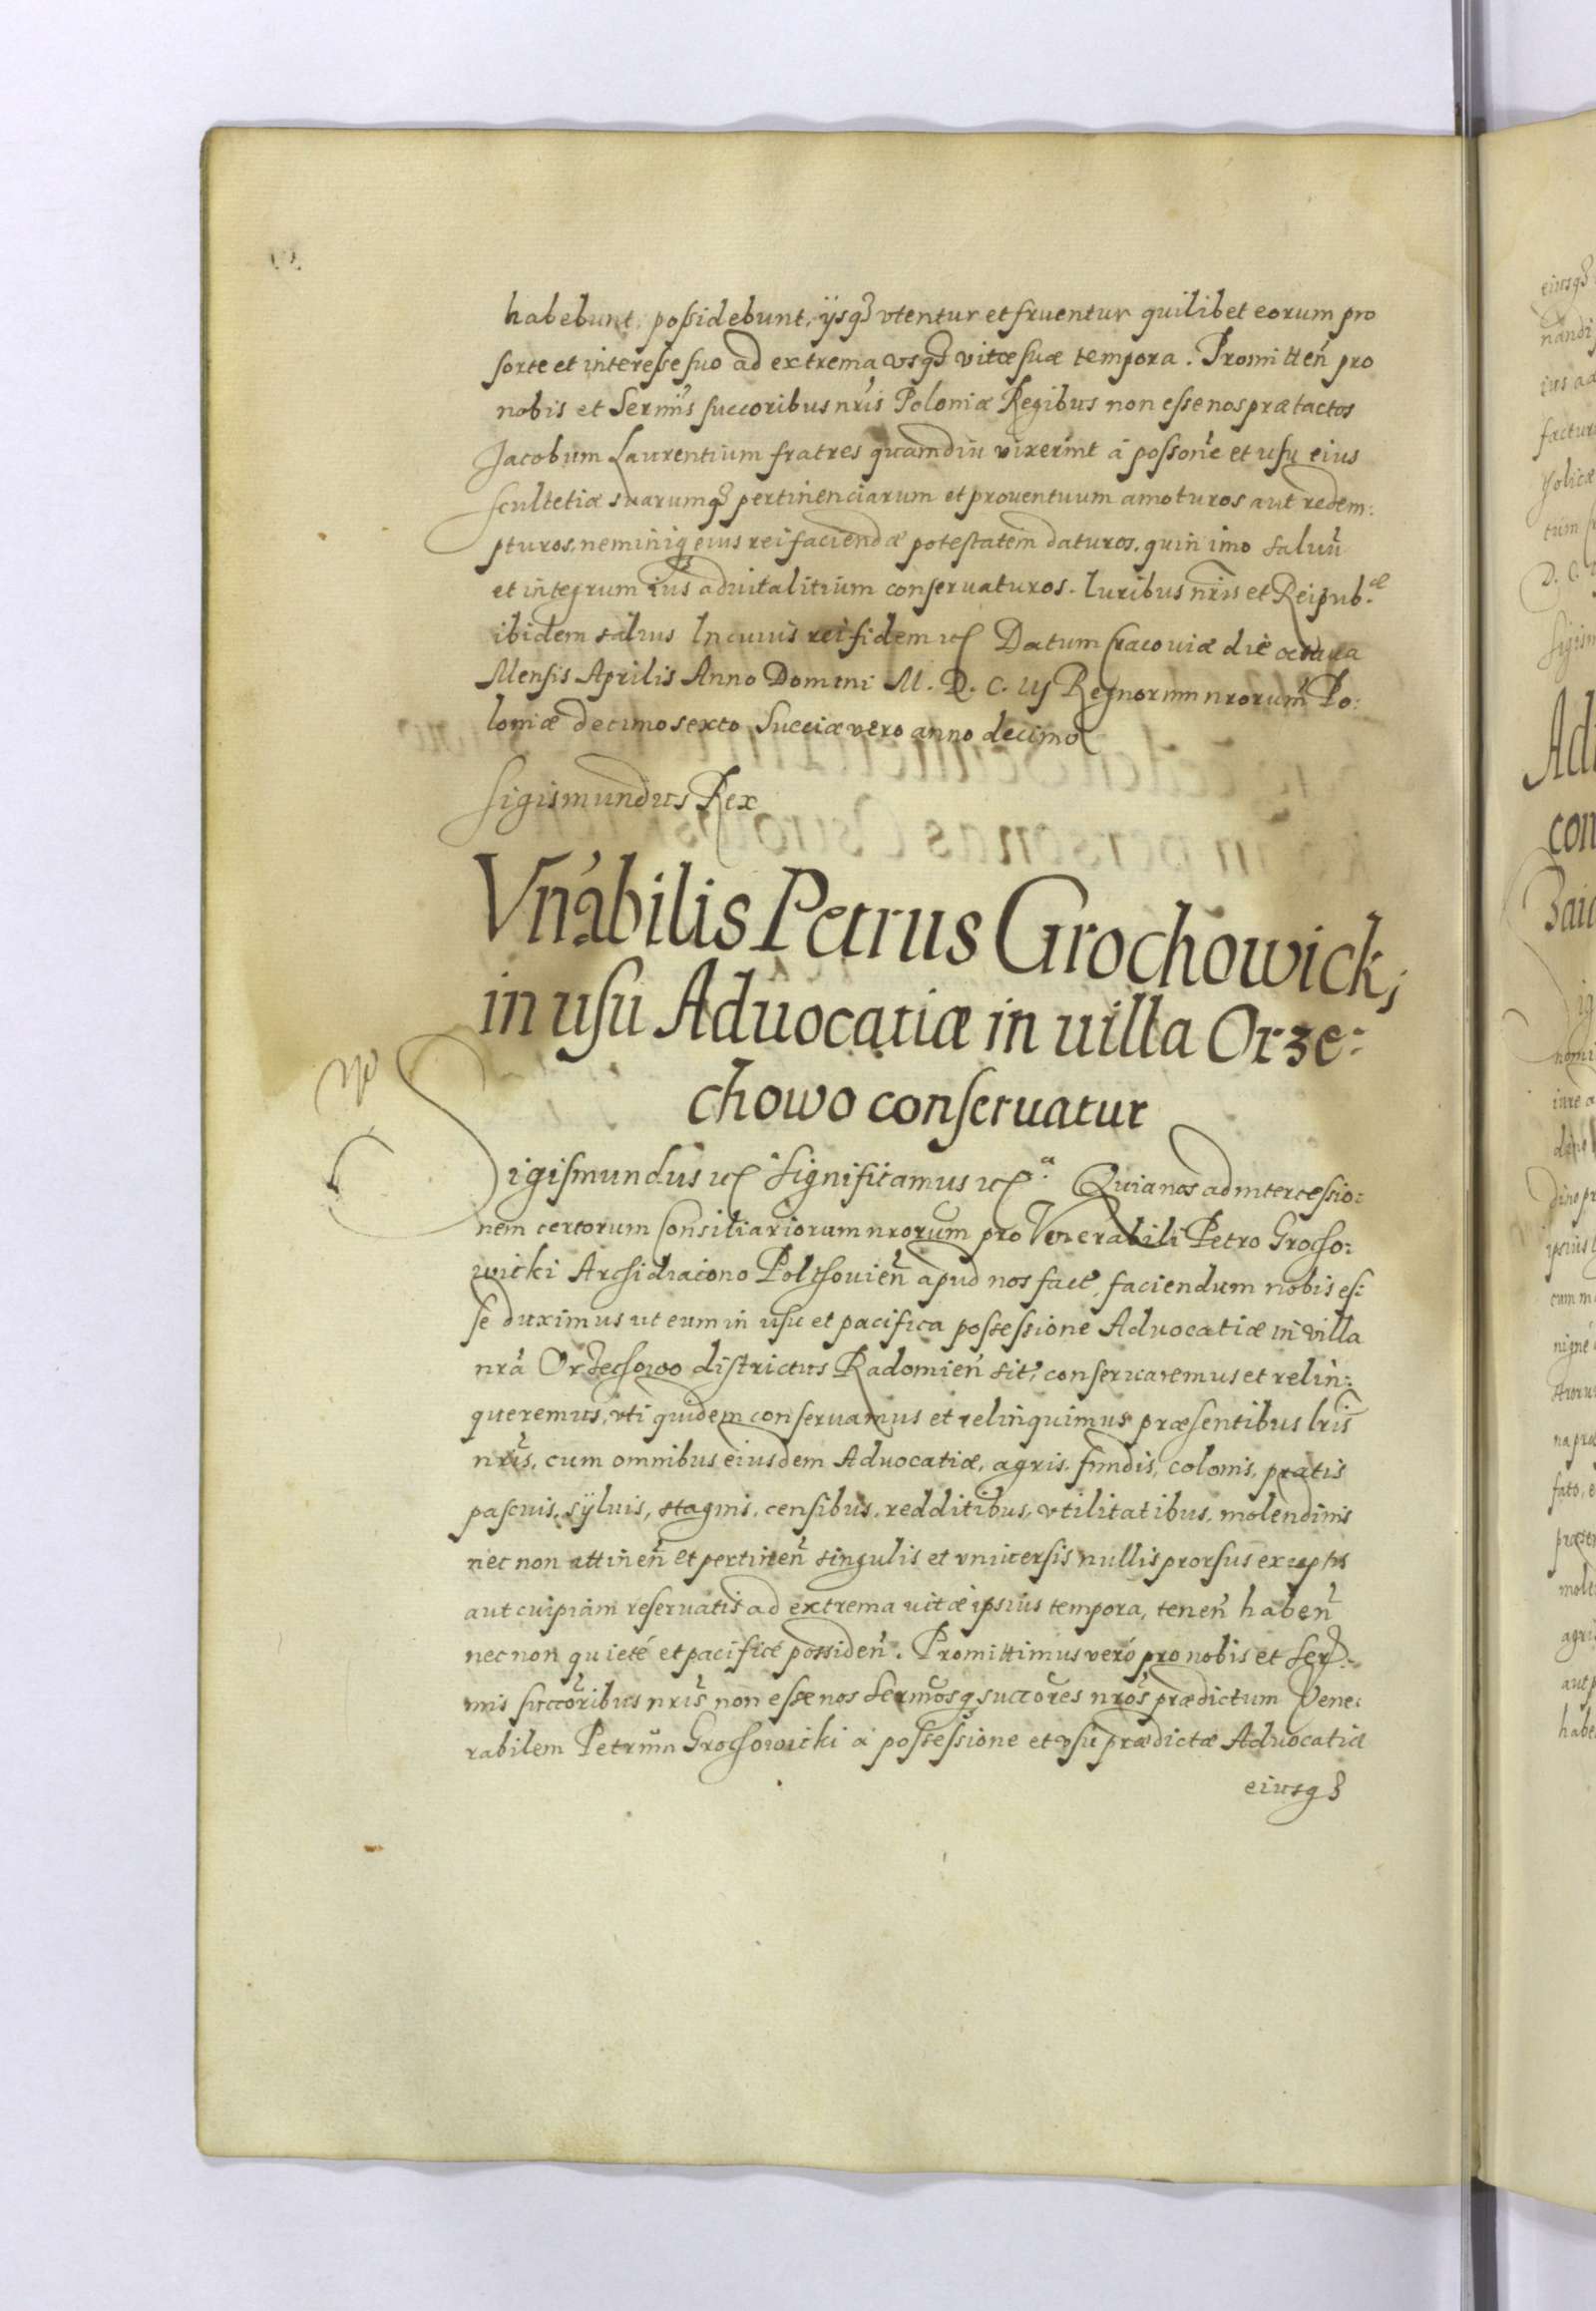 habebunt, possidebunt, ysq3 vtentur et fruentur quilibet eorum pro
sorte et interesse suo ad extrema vsq3 vitæ suæ tempora. Promitteñ pro
nobis et Sermis succoribus nris Poloniæ Regibus non esse nos prætactos
Jacobum Laurentium fratres quamdiu vixerint à possone et usu eius
scultetiæ suarumq3 pertinenciarum et prouentuum amoturos aut redem:
pturos, neminiq eius rei faciendæ potestatem daturos, quin imo saluũ
et integrum ius aduitalitium conseruaturos. Iuribus nris et Reipub.æ
ibidem saluis In cuius rei fidem etc Datum Cracouiæ die octaua
Mensis Aprilis Anno Domini M. D. C. iij Regnorum nrorum Po:
loniæ decimo sexto Sueciæ vero anno decimo
Sigismundus Rex
Vnábilis Petrus Grochowickj
in usu Aduocatiæ in uilla Orze:
chowo conseruatur
Sigismundus etc Significamus etc.a Quia nos ad intercessio:
nem certorum Consiliariorum nrorum pro Venerabili Petro Grocho:
wicki Archidiacono Polthouieñ apud nos fact, faciendum nobis es:
se duximus ut eum in usu et pacifica possessione Aduocatiæ in villa
nrâ Orzechowo districtus Radomieñ sit, conseruaremus et relin:
queremus, vti quidem conseruamus et relinquimus præsentibus lris
nris, cum omnibus eiusdem Aduocatiæ, agris, fundis, colonis, pratis
pascuis, syluis, stagnis, censibus, redditibus, vtilitatibus, molendinis
nec non attineñ et pertineñ singulis et vniuersis nullis prorsus exceptis
aut cuipiam reseruatis ad extrema uitæ ipsius tempora, teneñ habeñ
nec non quieté et pacificé possideñ. Promittimus veró pro nobis et Ser:
mis succoribus nris non esse nos Sermosq succores nros prædictum Vene:
rabilem Petrum Grochowicki à possessione et vsu prædictæ Aduocatiæ
eiusq3